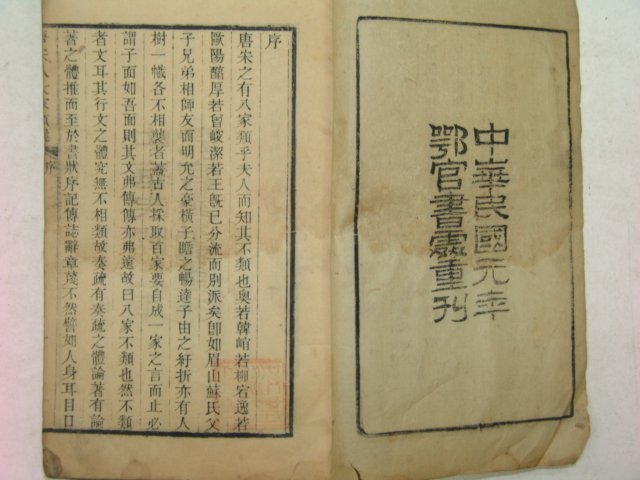 中華民國元年
鄂官書處重刊
序
唐宋之有八家類乎夫人而知其不類也奧若韓峭若柳宕逸若
歐陽醲厚若曾峻潔若王旣已分流而別派矣卽如眉山蘇氏父
子兄弟相師友而明允之豪橫子瞻之暢達子由之紆折亦有人
樹一幟各不相襲者蓋古人採取百家要自成一家之言而止必
謂子面如吾面則其文弗傳傳亦弗遠故曰八家不類也然不類
者文耳其行文之體究無不相類故奏疏有奏疏之體論著有論
著之體推而至於書狀序記傳誌辭章茂不然譬如人身耳目口
序